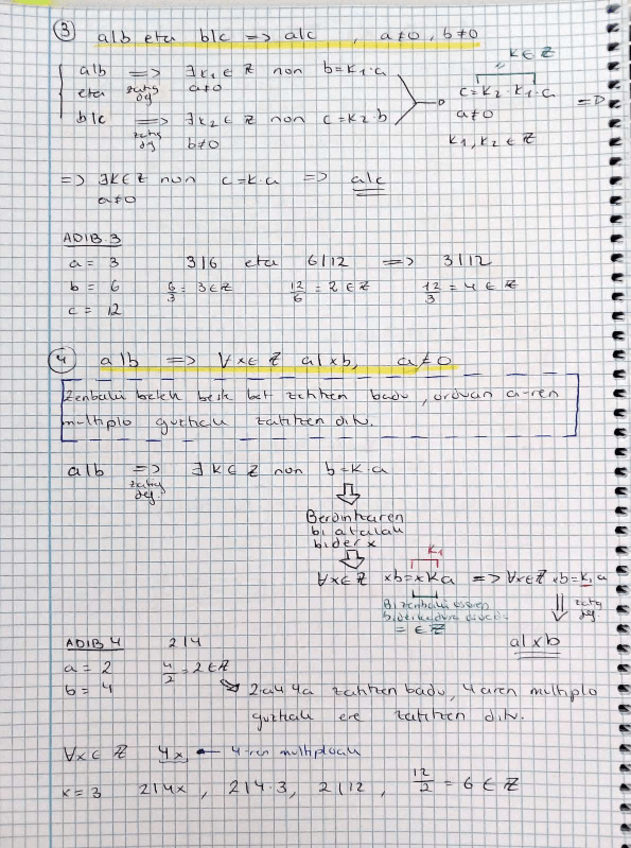 ③ a|b eta b|c => a|c , a≠0, b≠0
a|b => ∃k₁ ∈ ℤ non b=k₁·a
eta zatig. dg a≠0 c=k₂·k₁·a =>
b|c => ∃k₂ ∈ ℤ non c=k₂·b a≠0
zatig. dg b≠0 k₁,k₂ ∈ ℤ
k∈ℤ
=> ∃k∈ℤ non c=k·a => a|c
a≠0
ADIB.3
a = 3 3|6 eta 6|12 => 3|12
b = 6 6/3 = 3∈ℤ 12/6 = 2 ∈ ℤ 12/3 = 4 ∈ ℤ
c = 12
④ a|b => ∀x∈ℤ a|xb, a≠0
Zenbaki batek beste bat zatitzen badu, orduan a-ren
multiplo guztiak zatitzen ditu.
a|b => ∃k∈ℤ non b=k·a
zatig. dg.
Berdintzaren
bi atalak
bider x
k₁
∀x∈ℤ xb=xka => ∀x∈ℤ xb=k₁a
Bi zenbaki osoren
biderkadura
= ∈ ℤ
zatig. dg
a|xb
ADIB 4 2|4
a = 2 4/2 = 2∈ℤ
b = 4 2ak 4a zatitzen badu, 4aren multiplo
guztiak ere zatitzen ditu.
∀x∈ℤ 4x ← 4-ren multiploak
x=3 2|4x , 2|4·3, 2|12 , 12/2 = 6 ∈ ℤ